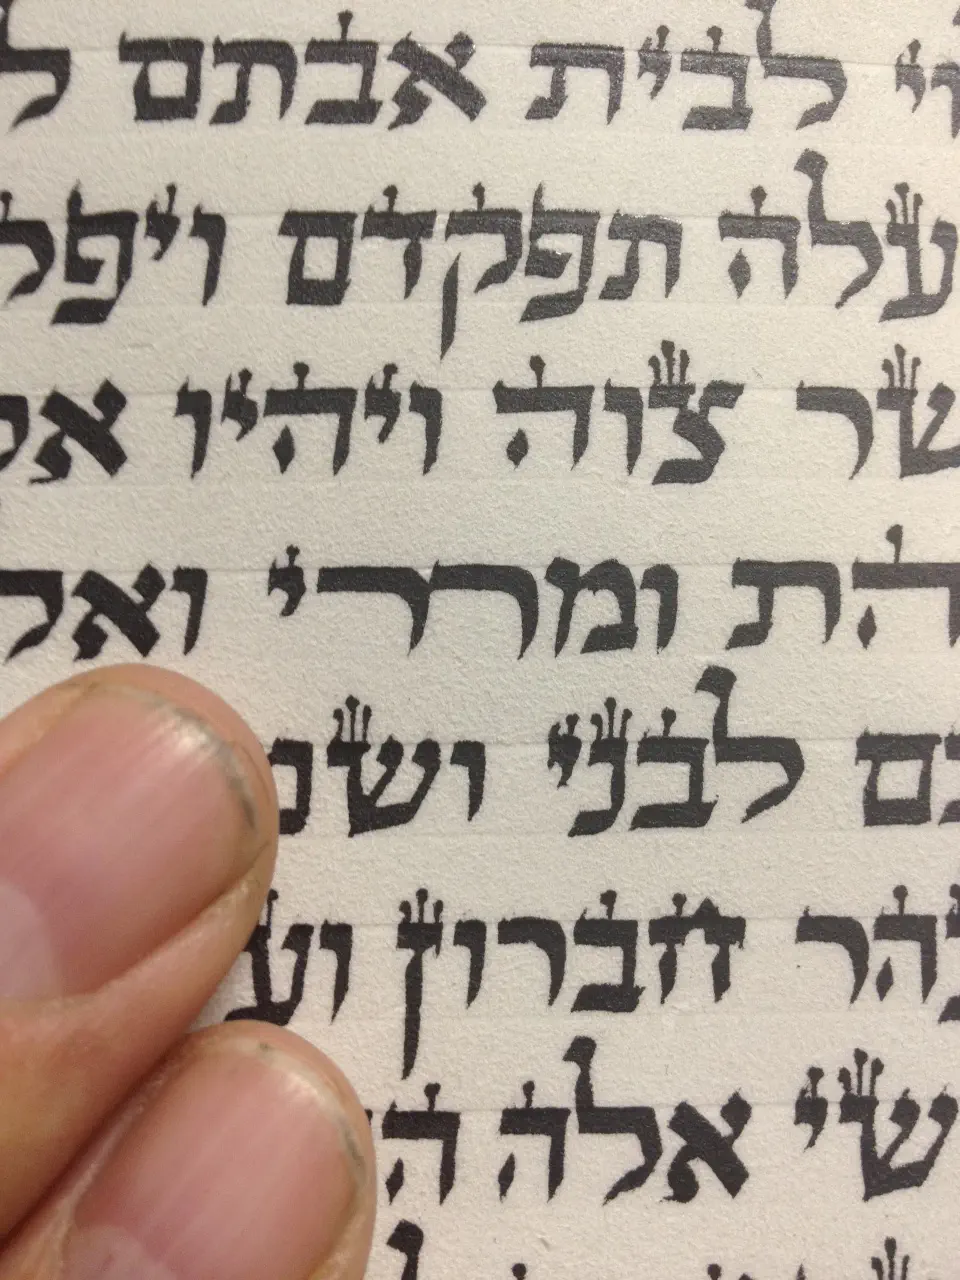 וי לבית אבתם ל
עלה תפקדם ויפק
שר צוה ויהיו אל
הת ומררי ואל
ם לבני ושמ
הר חברון וע
שי אלה ה